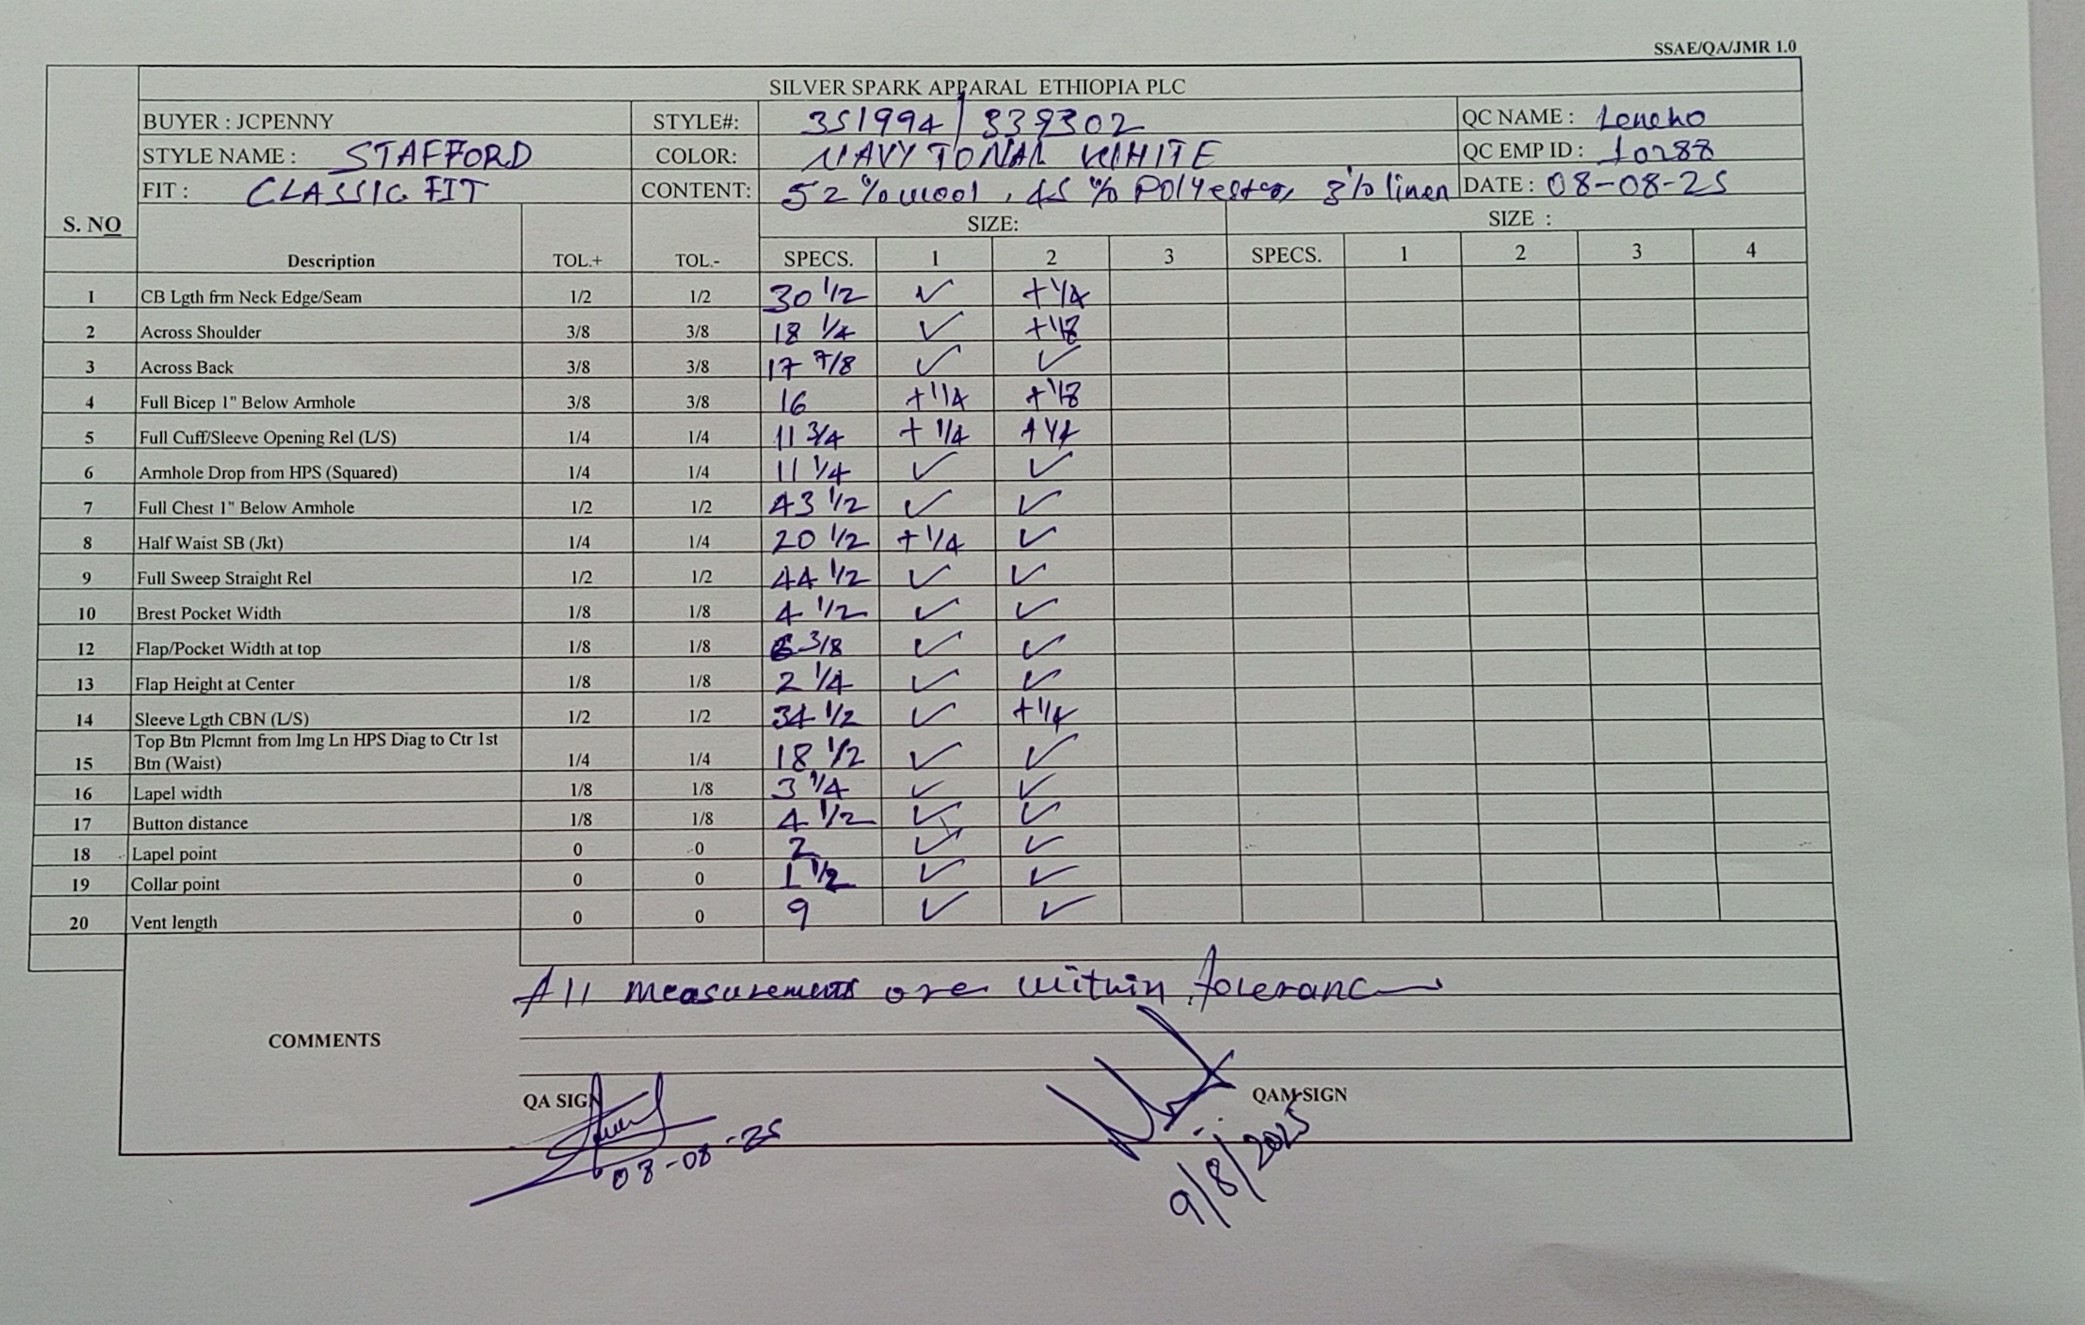 SSAE/QA/JMR 1.0
SILVER SPARK APPARAL ETHIOPIA PLC
BUYER : JCPENNY STYLE#: 3S1994/339302 QC NAME : Loncho
STYLE NAME : STAFFORD COLOR: NAVY TONAL WHITE QC EMP ID : 10288
FIT : CLASSIC FIT CONTENT: 52% wool, 45% Polyester, 3% linen DATE : 08-08-25
S. NO SIZE: SIZE :
Description TOL.+ TOL.- SPECS. 1 2 3 SPECS. 1 2 3 4
1 CB Lgth frm Neck Edge/Seam 1/2 1/2 30 1/2 ✓ +1/4
2 Across Shoulder 3/8 3/8 18 1/4 ✓ +1/8
3 Across Back 3/8 3/8 17 7/8 ✓ ✓
4 Full Bicep 1" Below Armhole 3/8 3/8 16 +1/4 +1/8
5 Full Cuff/Sleeve Opening Rel (L/S) 1/4 1/4 11 3/4 +1/4 +1/4
6 Armhole Drop from HPS (Squared) 1/4 1/4 11 1/4 ✓ ✓
7 Full Chest 1" Below Armhole 1/2 1/2 43 1/2 ✓ ✓
8 Half Waist SB (Jkt) 1/4 1/4 20 1/2 +1/4 ✓
9 Full Sweep Straight Rel 1/2 1/2 44 1/2 ✓ ✓
10 Brest Pocket Width 1/8 1/8 4 1/2 ✓ ✓
12 Flap/Pocket Width at top 1/8 1/8 6 3/8 ✓ ✓
13 Flap Height at Center 1/8 1/8 2 1/4 ✓ ✓
14 Sleeve Lgth CBN (L/S) 1/2 1/2 34 1/2 ✓ +1/4
Top Btn Plcmnt from Img Ln HPS Diag to Ctr 1st
15 Btn (Waist) 1/4 1/4 18 1/2 ✓ ✓
16 Lapel width 1/8 1/8 3 1/4 ✓ ✓
17 Button distance 1/8 1/8 4 1/2 ✓ ✓
18 Lapel point 0 0 2 ✓ ✓
19 Collar point 0 0 1 1/2 ✓ ✓
20 Vent length 0 0 9 ✓ ✓
All measurements are within tolerance
COMMENTS
QA SIGN QAM SIGN
08-08-25
9/8/2025